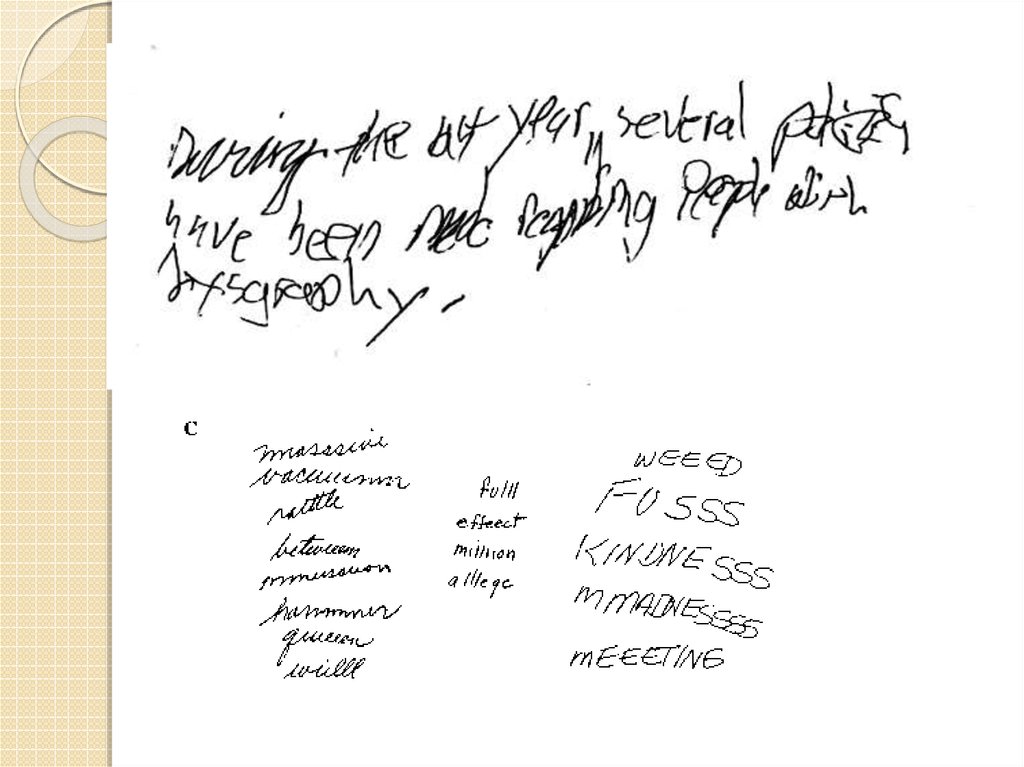 During the last year, several
have been made regarding People with
dysgraphy.
C
masssive
vacuuumm
ratttle
betweeen
hammmer
queeen
willll
fulll
effeect
milliion
alllege
WEEED
FUSSS
KINDNESSS
MMADNESSSSS
mEEETING